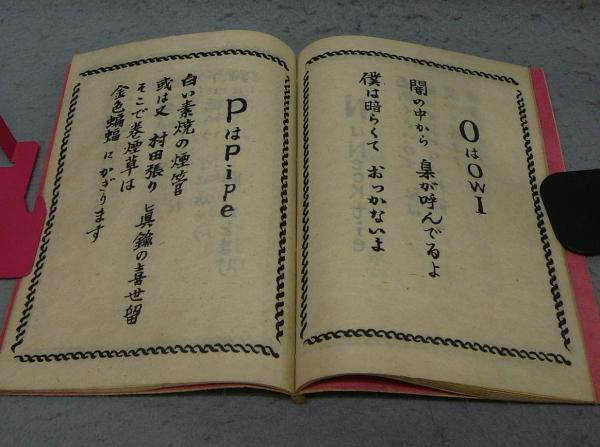 Oはowl
闇の中から 梟が呼んでるよ
僕は暗らくて おっかないよ
Pはpipe
白い素焼の煙管
或は又 村田張り 真鍮の喜世留
そこで巻煙草は
金色蝙蝠にかぎります